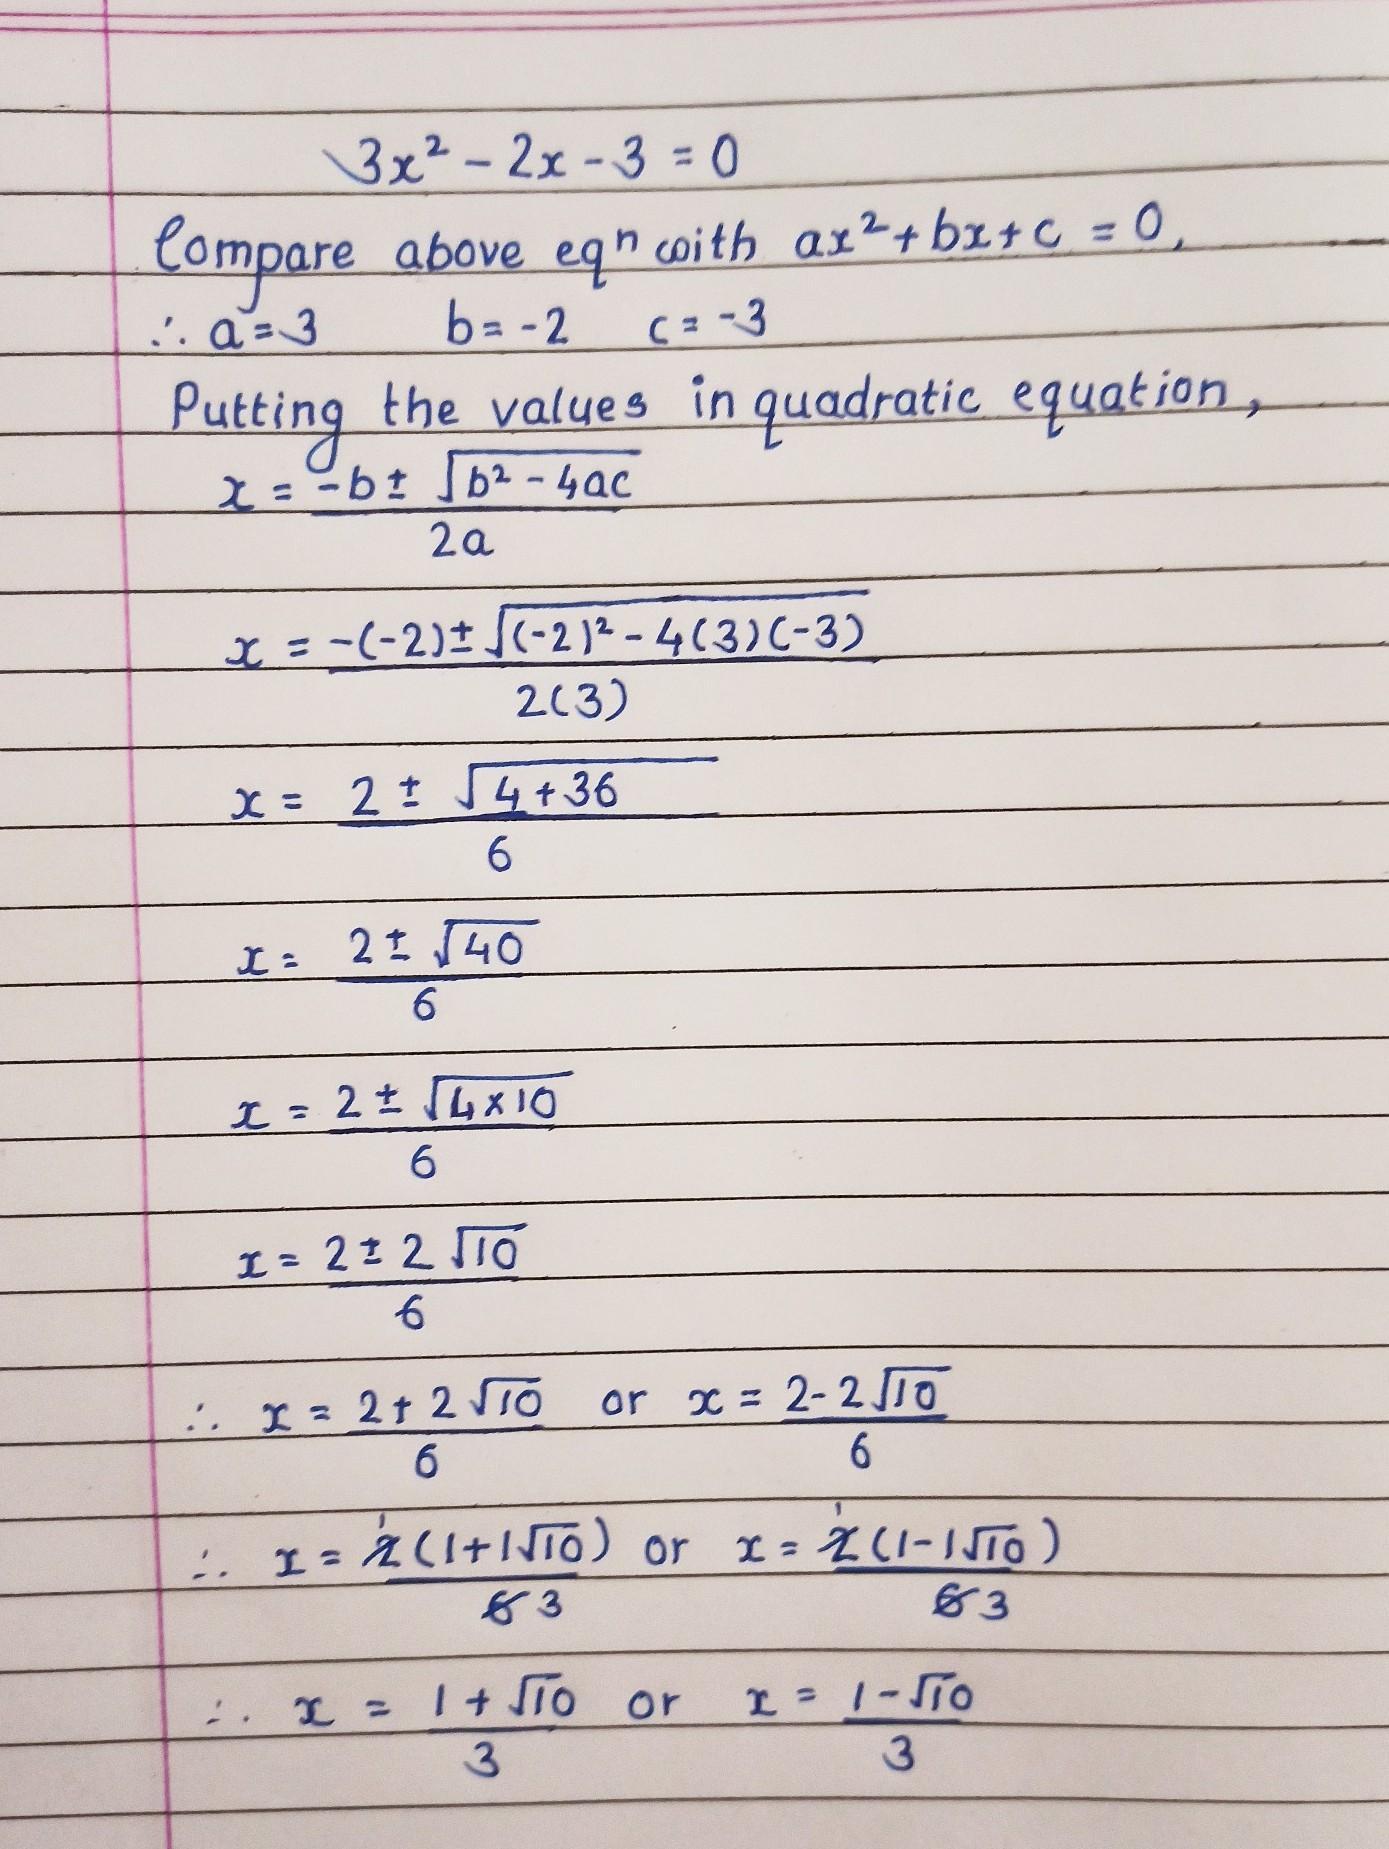 3x² - 2x - 3 = 0
Compare above eqⁿ with ax² + bx + c = 0,
∴ a = 3 b = -2 c = -3
Putting the values in quadratic equation,
x = -b ± √b² - 4ac
2a
x = -(-2) ± √(-2)² - 4(3)(-3)
2(3)
x = 2 ± √4 + 36
6
x = 2 ± √40
6
x = 2 ± √4 × 10
6
x = 2 ± 2√10
6
∴ x = 2 + 2√10 or x = 2 - 2√10
6 6
1 1
∴ x = 2(1 + 1√10) or x = 2(1 - 1√10)
6 3 6 3
∴ x = 1 + √10 or x = 1 - √10
3 3